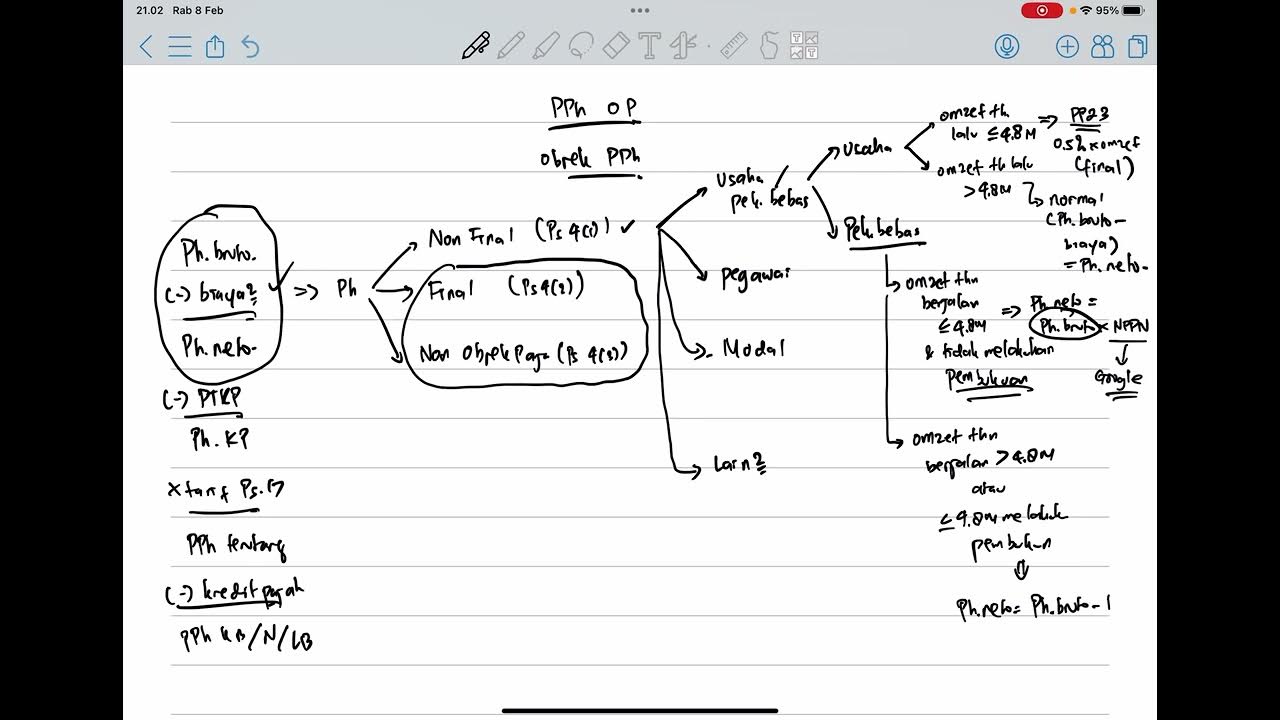 21.02 Rab 8 Feb
95%
PPh OP
Objek PPh
Ph. bruto
(-) biaya2
Ph. neto
(-) PTKP
Ph. KP
x tarif Ps. 17
PPh terutang
(-) kredit pajak
PPh KB/N/LB
=> Ph
Non Final (Ps 4(1)) ✓
Final (Ps 4(2))
Non Objek Pajak (Ps 4(3))
Usaha /
pek. bebas
Pegawai
Modal
Lain2
Usaha
omzet th
lalu ≤ 4.8M => PP23
0.5% x omzet
(final)
omzet th lalu
> 4.8M
normal
(Ph. bruto -
biaya)
= Ph. neto
Pek. bebas
omzet thn
berjalan
≤ 4.8M
& tidak melakukan
pembukuan
=> Ph. neto =
Ph. bruto x NPPN
Google
omzet thn
berjalan > 4.8M
atau
≤ 4.8M
pembukuan
Ph. neto = Ph. bruto -